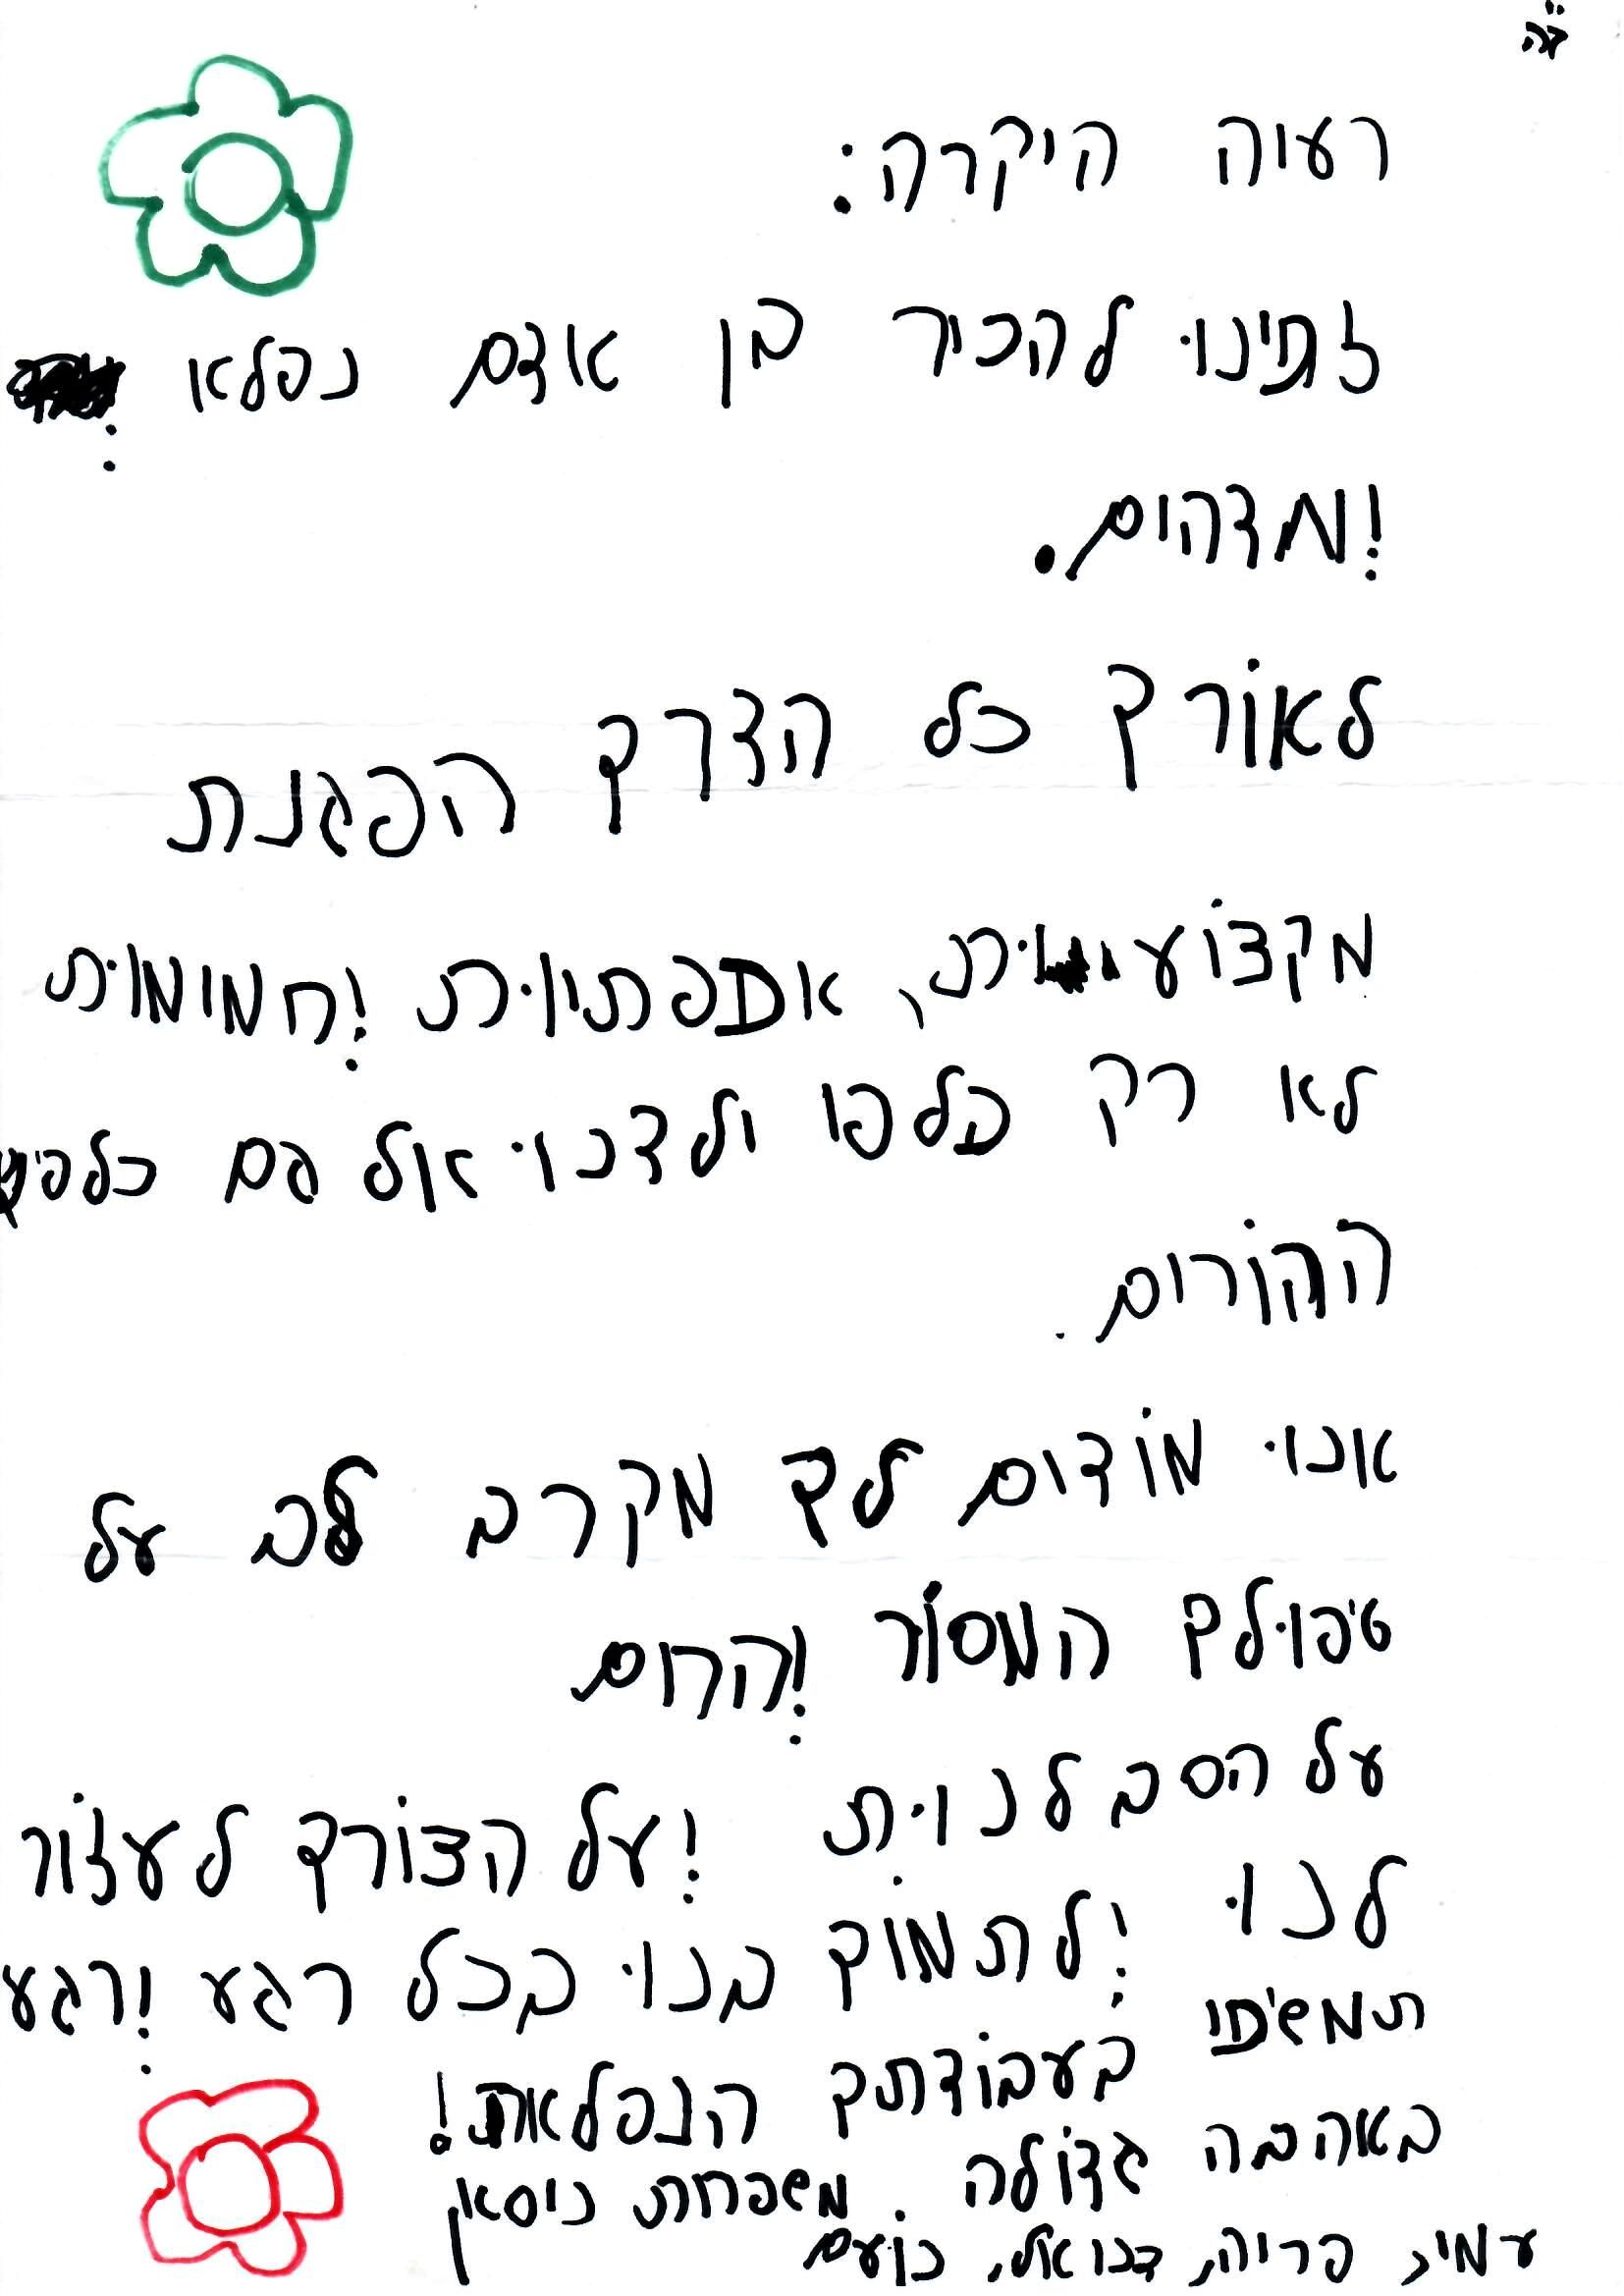 ב"ה
רעיה היקרה:
זכינו להכיר בן אדם נפלא
ומדהים.
לאורך כל הדרך הפגנת
מקצועיות, אמפתיות וחמימות
לא רק כלפי ולדנו אלא גם כלפי
ההורים.
אנו מודים לך מקרב לב על
טיפולך המסור והחם
על הסבלנות ועל הצורך לעזור
לנו ולתמוך בנו בכל רגע ורגע
תמשיכי בעבודתך הנפלאה!
באהבה גדולה. משפחת ניסאן
עמי, פריה, נועם